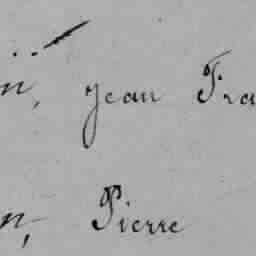 n, Jean Fra
n, Pierre